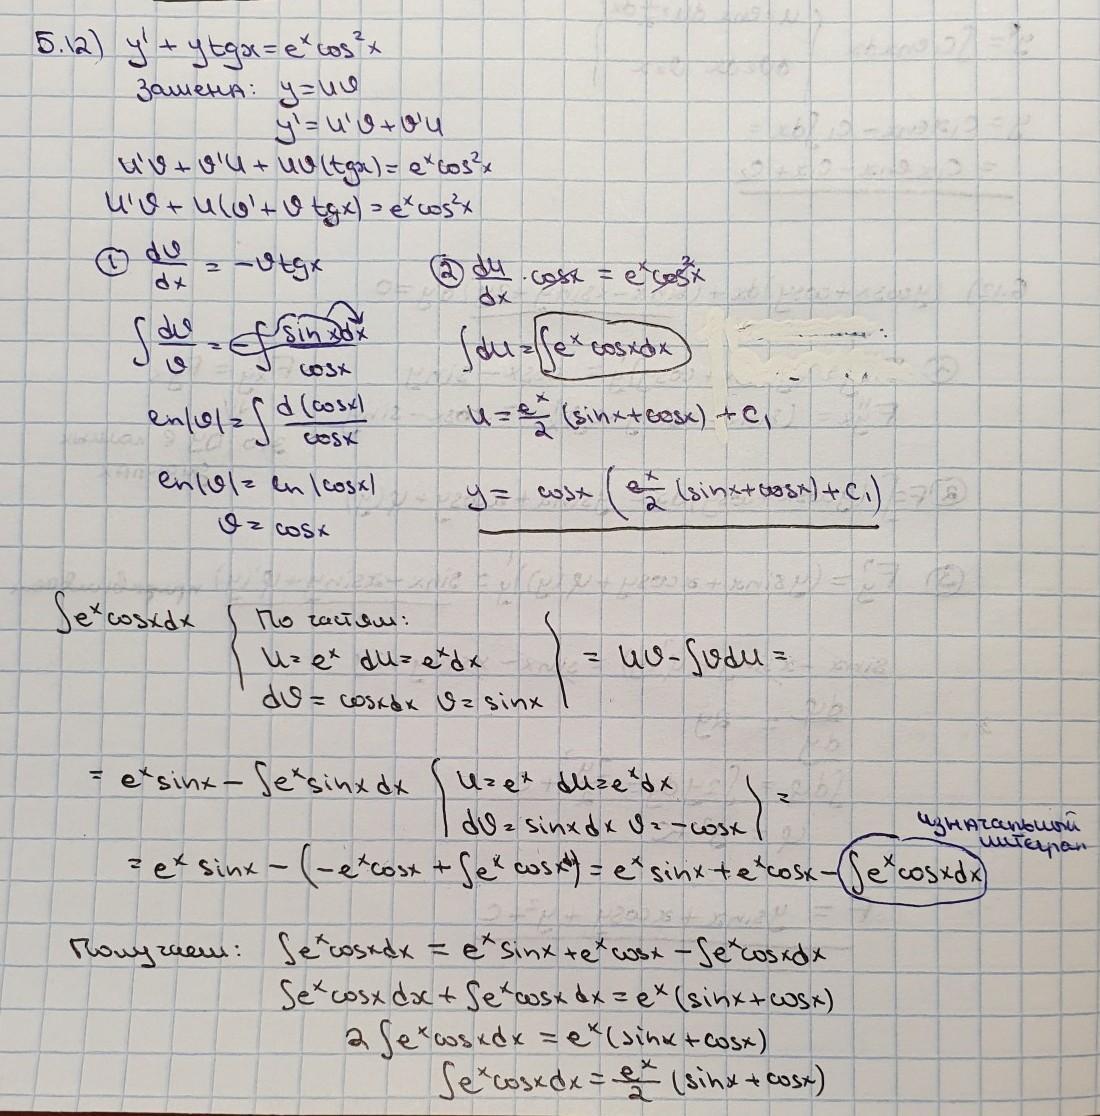 5.12) y' + y tgx = e^x cos^2 x
Замена: y = uϑ
y' = u'ϑ + ϑ'u
u'ϑ + ϑ'u + uϑ(tgx) = e^x cos^2 x
u'ϑ + u(ϑ' + ϑ tgx) = e^x cos^2 x
① dϑ/dx = -ϑ tgx
∫ dϑ/ϑ = -∫ sinxdx/cosx
ln|ϑ| = ∫ d(cosx)/cosx
ln|ϑ| = ln|cosx|
ϑ = cosx
② du/dx · cosx = e^x cos^2 x
∫du = ∫e^x cosxdx
u = e^x/2 (sinx + cosx) + C₁
y = cosx (e^x/2 (sinx + cosx) + C₁)
∫e^x cosxdx { По частям: u = e^x du = e^x dx dϑ = cosxdx ϑ = sinx } = uϑ - ∫ϑdu =
= e^x sinx - ∫e^x sinx dx { u = e^x du = e^x dx dϑ = sinxdx ϑ = -cosx } =
изначальный
интеграл
= e^x sinx - (-e^x cosx + ∫e^x cosx) = e^x sinx + e^x cosx - ∫e^x cosxdx
Получаем: ∫e^x cosxdx = e^x sinx + e^x cosx - ∫e^x cosxdx
∫e^x cosx dx + ∫e^x cosx dx = e^x (sinx + cosx)
2 ∫e^x cosxdx = e^x (sinx + cosx)
∫e^x cosxdx = e^x/2 (sinx + cosx)